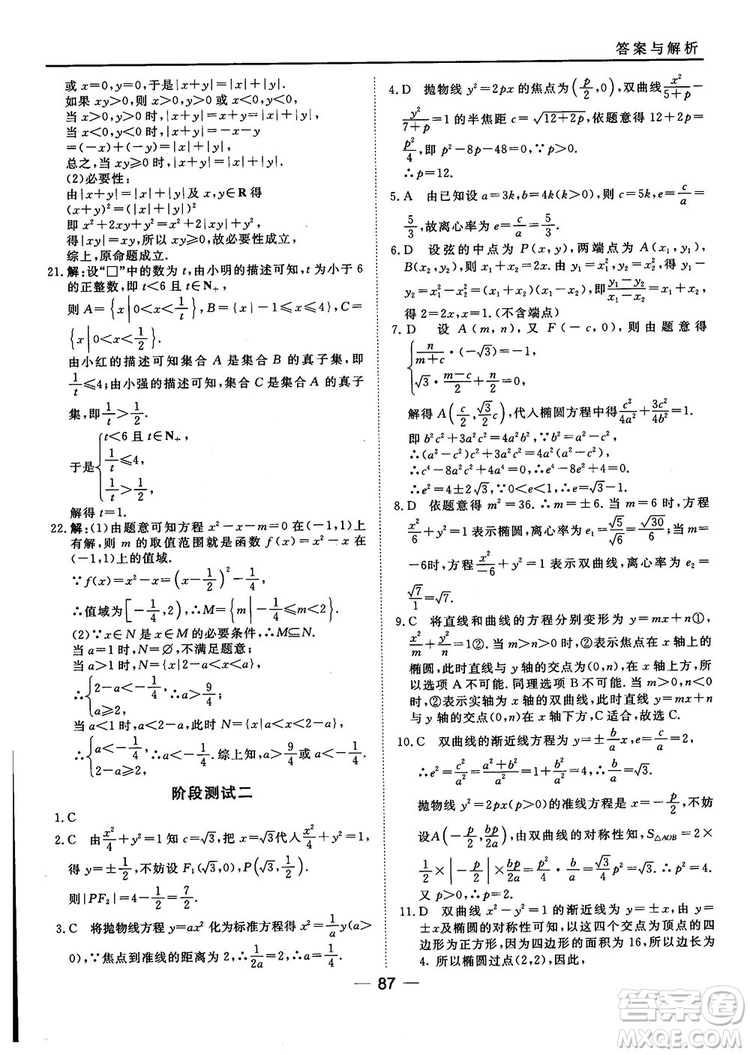 答案与解析
或x=0,y=0时,于是|x+y|=|x|+|y|.
如果xy>0,则x>0,y>0或x<0,y<0,
当x>0,y>0时,|x+y|=x+y=|x|+|y|,
当x<0,y<0时,|x+y|=-x-y
=(-x)+(-y)=|x|+|y|,
总之,当xy≥0时,|x+y|=|x|+|y|.
(2)必要性:
由|x+y|=|x|+|y|及x,y∈R得
(x+y)²=(|x|+|y|)²
即x²+2xy+y²=x²+2|xy|+y²
得|xy|=xy,所以xy≥0,故必要性成立,
综上,原命题成立.
21.解:设“□”中的数为t,由小明的描述可知,t为小于6
的正整数,即t<6且t∈N₊,
则A={x|0<x<1/t},B={x|-1≤x≤4},C=
{x|0<x≤1/2}.
由小红的描述可知集合A是集合B的真子集,即
1/t≤4;由小强的描述可知集合C是集合A的真子
集,即1/t>1/2.
于是{t<6且t∈N₊, 1/t≤4, 1/t>1/2.
解得t=1.
22.解:(1)由题意可知方程x²-x-m=0在(-1,1)上
有解,则m的取值范围就是函数f(x)=x²-x在
(-1,1)上的值域.
∵f(x)=x²-x=(x-1/2)²-1/4,
∴值域为[-1/4,2),∴M={m|-1/4≤m<2}.
(2)∵x∈N是x∈M的必要条件,∴M⊆N.
当a=1时,N=∅,不满足题意;
当a>1时,a>2-a,此时N={x|2-a<x<a},
∴{2-a<-1/4, a≥2 ∴a>9/4;
当a<1时,a<2-a,此时N={x|a<x<2-a},
∴{a<-1/4, 2-a≥2 ∴a<-1/4.综上知,a>9/4或a<-1/4.
阶段测试二
1.C
2.C 由x²/4+y²=1知c=√3,把x=√3代入x²/4+y²=
1,得y=±1/2,不妨设F₁(√3,0),P(√3,1/2),
则|PF₂|=√((√3+√3)²+(1/2-0)²)=7/2.
3.C 将抛物线方程y=ax²化为标准方程x²=1/a y(a>
0),∵焦点到准线的距离为2,∴1/(2a)=2,∴a=1/4.
4.D 抛物线y²=2px的焦点为(p/2,0),双曲线x²/(5+p)-
y²/(7+p)=1的半焦距c=√(12+2p),依题意得12+2p=
p²/4,即p²-8p-48=0(p>0).
∴p=12.
5.A 由已知设a=3k,b=4k(k>0),则c=5k,e=c/a=
5/3,故离心率为e=c/a=5/3.
6.D 设弦的中点为P(x,y),两端点为A(x₁,y₁),
B(x₂,y₂),则x₁+x₂=2x,由x₁²=y₁,x₂²=y₂,两式相减,
得(x₁+x₂)(x₁-x₂)=y₁-y₂,由(y₁-y₂)/(x₁-x₂)=2,
得2=2x,x=1.(不含端点)
7.D 设A(m,n),又F(-c,0),则由题意得
{n/(m+c)·(-√3)=-1, √3·(m-c)/2+n/2=0,
解得A(c/2,√3/2c),代入椭圆方程中,有c²/4a²+3c²/4b²=1.
即b²c²+3a²c²=4a²b²,∵b²=a²-c²,
∴(a²-c²)c²+3a²c²=4a²(a²-c²),
∴c⁴-8a²c²+4a⁴=0,∴e⁴-8e²+4=0,
∴e²=4±2√3,∵0<e<1,∴e=√3-1.
8.D 依题意得m²=36,∴m=±6.当m=6时,方程
x²/6+y²=1表示椭圆,离心率为e=√5/√6=√30/6;当m=
-6时,方程x²/-6+y²=1表示双曲线,离心率为e=
√7/1=√7.
9.C 将直线和曲线的方程分别变形为y=mx+n①,
x²/m+y²/n=1②.当m>n>0时,②表示焦点在x轴上的
椭圆,此时直线与y轴的交点为(0,n),在x轴上方,所
以选项A不可能.同理选项B不可能.当m>0,n<0
时,②表示实轴为x轴的双曲线,此时直线y=mx+n
与y轴的交点(0,n)在x轴下方,C适合,故选C.
10.C 双曲线的渐近线方程为y=±b/a x,∵c/a=2,
∴e²=c²/a²=(a²+b²)/a²=4,∴b²/a²=3,∴b/a=√3.
抛物线y²=2px(p>0)的准线方程为x=-p/2,不妨
设A(-p/2,bp/2a),由双曲线的对称性知,S△AOB=2×
1/2×|-p/2|×|bp/2a|=b/a×p²/4=√3/4p²=√3.
又p>0,∴p=2.
11.D 双曲线x²-y²=1的渐近线方程为y=±x,由双曲
线及椭圆的对称性知,以这四个交点为顶点的四
边形为正方形,因四边形的面积为16,所以边长为
4.所以椭圆过点(2,2),因此,
87